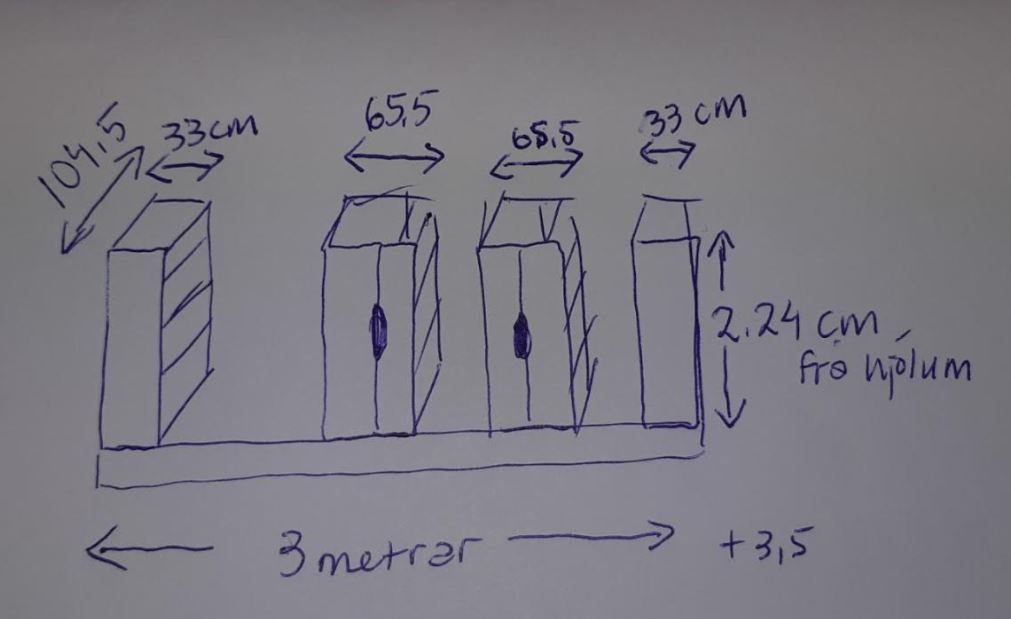 104,5
33 cm
65,5
65,5
33 cm
2.24 cm
frá hjólum
3 metrar
+3,5